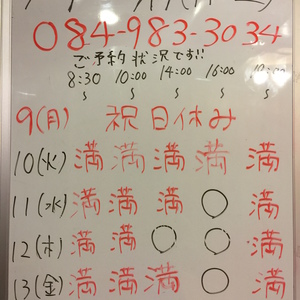 084-983-3034
ご予約状況です!!
8:30 10:00 14:00 16:00
~ ~ ~ ~ ~
9(月) 祝日休み
10(火) 満 満 満 満 満
11(水) 満 満 満 ○ 満
12(木) 満 ○ ○ ○ 満
13(金) 満 満 満 ○ 満